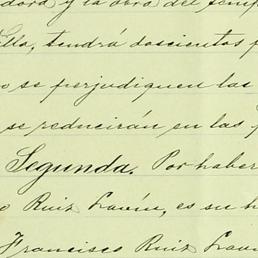 dora y la obra del temp
Ella, tendrá doscientos p
o se perjudiquen las
se reducirán en las
Segunda. Por haber
o Ruiz Gavín, es su h
Francisco Ruiz Gaví